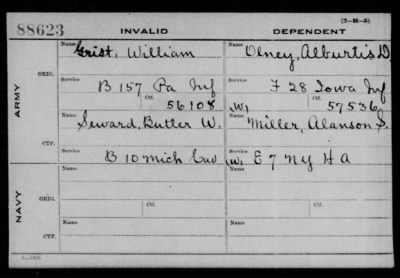 (3-H-3)
88623 INVALID DEPENDENT
ARMY
ORIG.
Name Grist, William
Name Olney, Alburtis D
Service B 157 Pa Inf
Service F 28 Iowa Inf
Ctf. 56108
W, Ctf. 57536
CTF.
Name Seward, Butler W.
Name Miller, Alanson S.
Service B 10 Mich Cav
Service W, E 7 NY H A
NAVY
ORIG.
Name Ctf.
Name Ctf.
CTF.
Name
Name